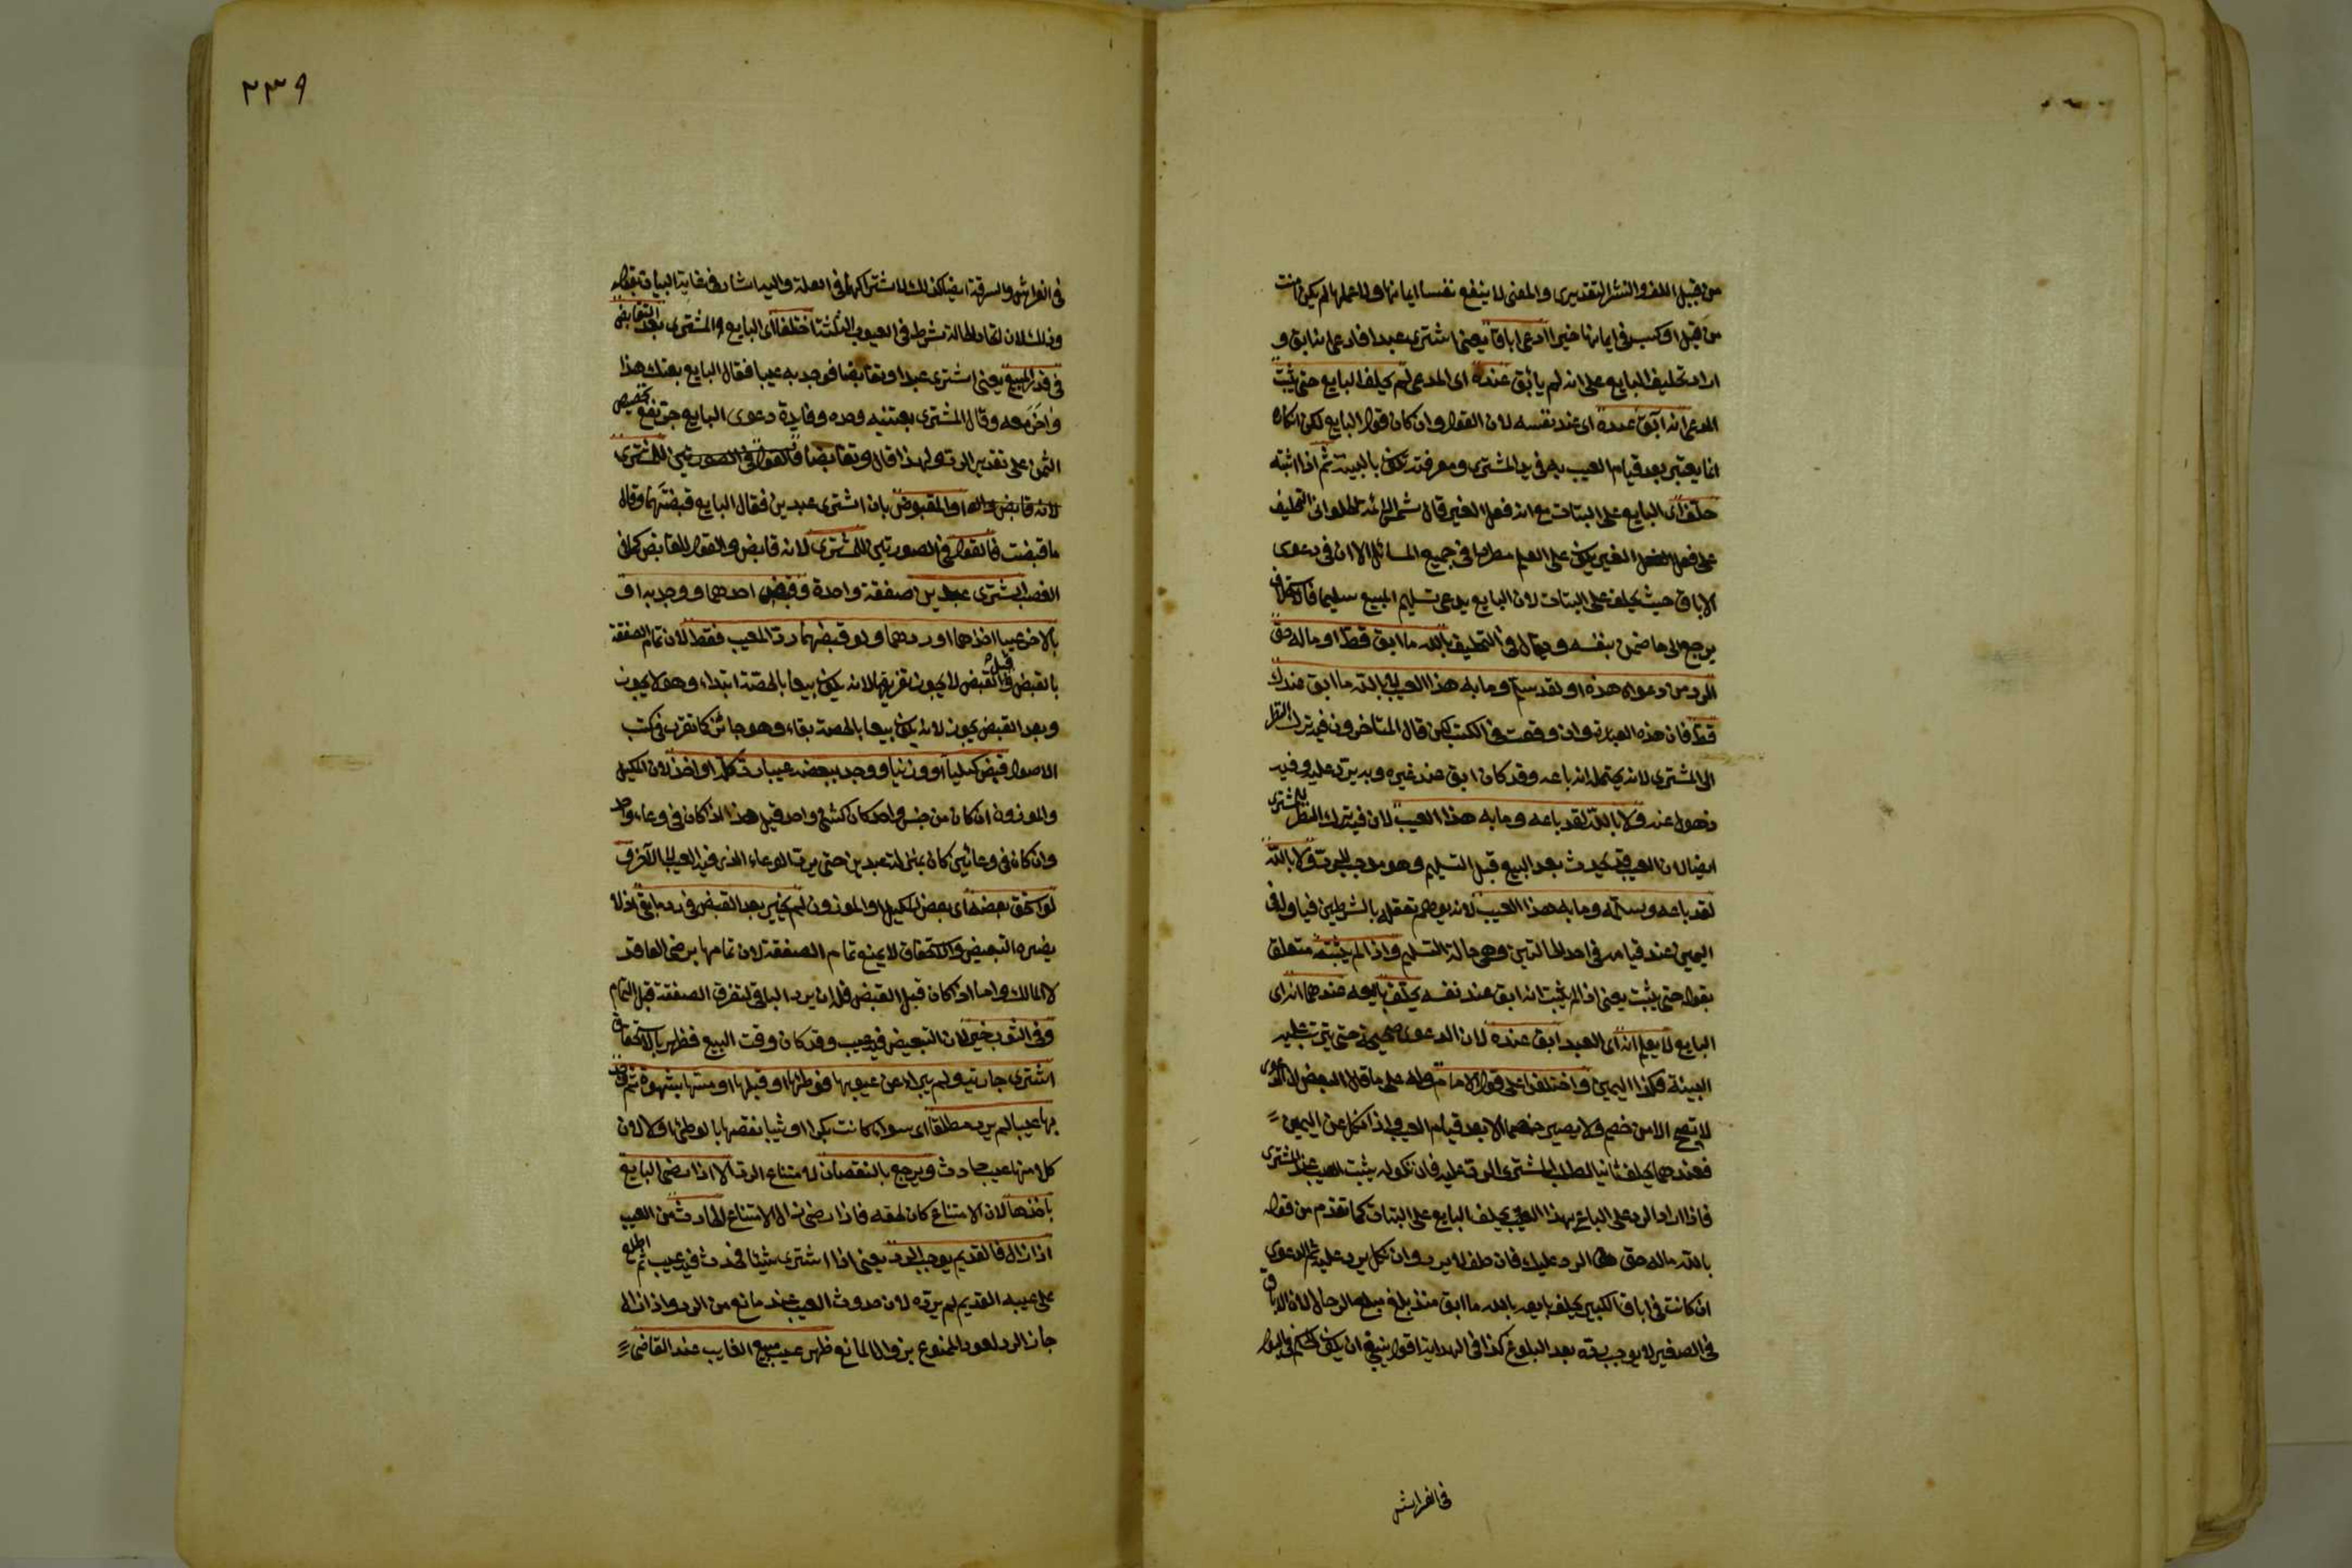 من قبيل اللف والنشر التقديرى والمعنى لا ينفع نفسا ايمانها ولا عملها لم يكن امنت
من قبل او كسبت فى ايمانها خيرا ادعى اباقا يعنى اشترى عبدا فادعى انه ابق و
اراد تحليف البايع على انه لم يابق عنده اى المدعى لم يحلف البايع حتى يثبت
المدعى انه ابق عنده اى عند نفسه لان القول وان كان قول البايع لكن انكاره
انما يعتبر بعد قيام العيب به فى يد المشترى ومعرفته تكون بالبينة ثم اذا اثبته
حلف اى البايع على البتات مع انه فعل الغير قال شمس الائمة الحلوانى التحليف
على فعل الغير يكون على العلم مطردا فى جميع المسائل الا ان فى دعوى
الاباق حيث يحلف على البتات لان البايع يدعى تسليم المبيع سليما فالاستحلاف
يرجع الى ما ضمن بنفسه ويقال فى التحليف بالله ما ابق قط او ماله حق
الرد من دعواه هذه او لقد سلم وما به هذا العيب لا بالله ما ابق عندك
قط فان هذه العبارة وان وقعت فى الكتب لكن قال المتاخرون فيه ترك النظر
الى المشترى لانه يحتمل انه باعه وقد كان ابق عند غيره وبه يرد عليه وفيه
ذهول عنه ولا بالله لقد باعه وما به هذا العيب لان فيه ترك النظر للمشترى
ايضا لان العيب قد يحدث بعد البيع قبل التسليم وهو موجب للرد ولا بالله
لقد باعه وسلمه وما به هذا العيب لانه يوهم تعلقه بالشرطين فيا ول فى
اليمين عند قيامه فى احد الحالتين وهى حالة التسليم واذا لم يثبته متعلق
بقوله حتى يثبت يعنى اذا لم يثبت انه ابق عند نفسه يحلف بايعه عندهما انه اى
البايع لا يعلم انه اى العبد ابق عنده لان الدعوى صحيحة حتى يترتب عليه
البينة فكذا اليمين واختلفوا على قول الامام وله على ما قال البعض ان الدعوى
لا تصح الا من خصم ولا يصير خصما الا بعد قيام العيب واذا نكل عن اليمين
فعندهما يحلف ثانيا لطلب المشترى الرد عليه فان نكوله يثبت العيب عند المشترى
فاذا اراد الرد على البايع بهذا العيب يحلف البايع على البتات كما تقدم من قوله
بالله ماله حق الرد عليك فان حلف لا يرد وان نكل يرد عليه ثم الدعوى
ان كانت فى اباق الكبير يحلف بايعه بالله ما ابق منذ بلغ مبلغ الرجال لان الاباق
فى الصغير لا يوجب رده بعد البلوغ كذا فى الهداية اقول ينبغى ان يكون الحكم فى البول
فى الفراش
٢٣٩
فى الفراش والسرقة ايضا كذلك لاشتراكهما فى العلة واليه اشار فى غاية البيان بقوله
وذلك لان اتحاد الحالة شرط فى العيوب الثلثة اختلفا اى البايع والمشترى بعد التقابض
فى قدر المبيع يعنى اشترى عبدا وتقابضا فوجد به عيبا فقال البايع بعتك هذا
واخر معه وقال المشترى بعتنيه وحده وفايدة دعوى البايع تنقيص
الثمن على تقدير الرد ولهذا قال وتقابضا فالقول فى الصورتين للمشترى
لانه قابض او المقبوض بان اشترى عبدين فقال البايع قبضتهما وقال
ما قبضت فالقول فى الصورتين للمشترى لانه قابض والقول للقابض كما فى
الغصب اشترى عبدين صفقة واحدة وقبض احدهما ووجد به او
بالاخر عيبا اخذهما او ردهما ولو قبضهما رد المعيب فقط لان تمام الصفقة
بالقبض وقبل القبض لا يجوز تفريقها لانه يكون بيعا بالحصة ابتداء وهو لا يجوز
وبعد القبض يجوز لانه يكون بيعا بالحصة بقاء وهو جائز كما تقرر فى كتب
الاصول قبض كيليا او وزنيا ووجد ببعضه عيبا رد كله او اخذ لان المكيل
والموزون ان كان من جنس واحد كان كشئ واحد قيل هذا اذا كان فى وعاء واحد
وان كان فى وعائين كان بمنزلة عبدين حتى يرد الوعاء الذى فيه العيب لا الآخر و
لو استحق بعضه اى بعض المكيل او الموزون لم يخير بعد القبض فى رد ما بقى اذ لا
يضره التبعيض والاستحقاق لا يمنع تمام الصفقة لان تمامها برضى العاقد
لا المالك واما اذا كان قبل القبض فله ان يرد الباقى لتفرق الصفقة قبل التمام
وفى الثوب خير لان التبعيض فيه عيب وقد كان وقت البيع فظهر بالاستحقاق
اشترى جارية ولم يبرا من عيوبها فوطئها او قبلها او مسها بشهوة ثم وجد
بها عيبا لم يرد مطلقا اى سواء كانت بكرا او ثيبا نقصها بالوطئ او لا لان
كلا منها عيب حادث ويرجع بالنقصان لامتناع الرد الا اذا رضى البايع
باخذها لان الامتناع كان لحقه فاذا رضى زال الامتناع الحادث من العيب
اذا زال فالقديم يوجب الرد يعنى اذا اشترى شيئا فحدث فيه عيب ثم اطلع
على عيبه القديم لم يرده لان حدوث العيب عنده مانع من الرد واذا زال
جاز الرد لعود الممنوع بزوال المانع ظهر عيب مبيع الغايب عند القاضى